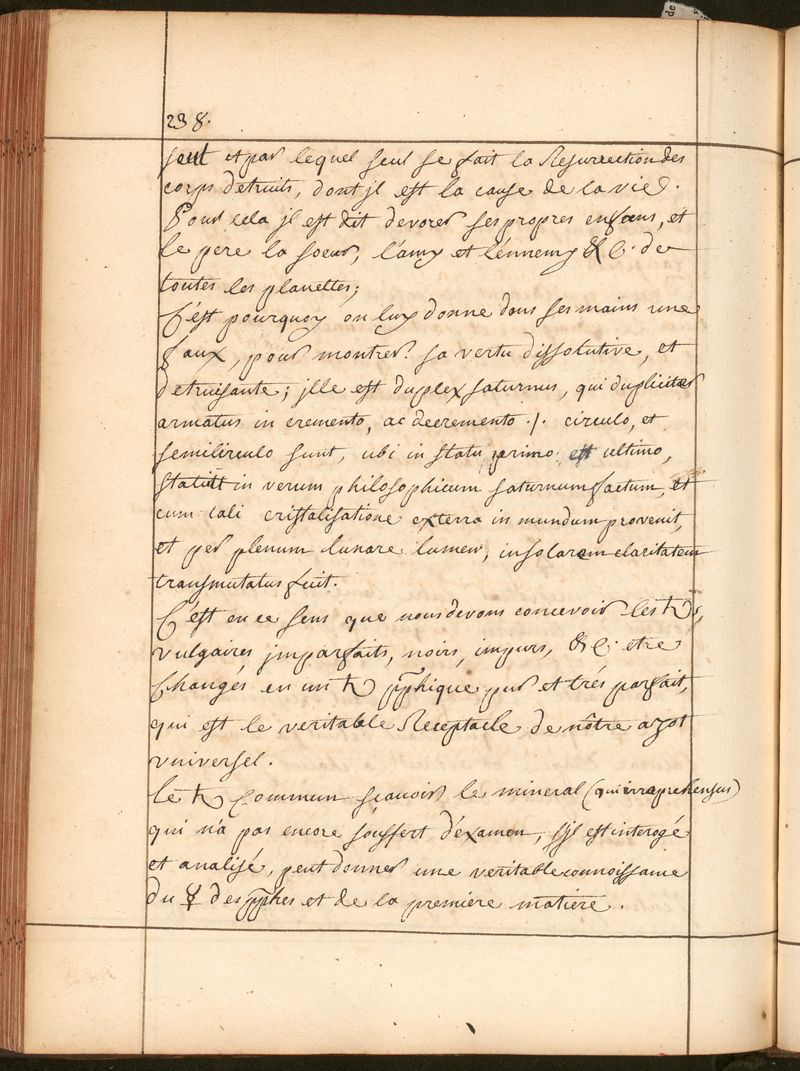 238.
seul et par lequel seul se fait la Resurrection des
corps detruits, dont jl est la cause de la vie.
Pour cela jl est dit devorer ses propres enfans, et
le pere la soeur, l'amy et l'énnemy &c. de
toutes les planettes;
C'est pourquoy on luy donne dans ses mains une
faux, pour montrer sa vertu dissolutive, et
detruisante; jlle est duplex saturnus, qui dupliciter
armatus in cremento, ac decremento ./. circulo, et
semilirculo sunt, ubi in statu primo est ultimo,
in verum philosophicum saturnum factum, et
cum tali cristalisatione exterra in mundum provenit,
et per plenum lunare lumen, in solarem claritatem
transmutatus fuit.
C'est en ce sens que nous devons concevoir les ♄s,
vulgaires jmparfaits, noirs, impurs, &c. etre
Changés en un ♄ pphique pur et trés parfait,
qui est le veritable Receptacle de nôtre azot
vniversel.
le ♄ Commun sçauoir le mineral (qui irreprehensus)
qui n'a pas encore souffert d'examen, s'jl est interogé
et analisé, peut donner une veritable connoissance
du ☿ des pphes et de la premiere matiere.